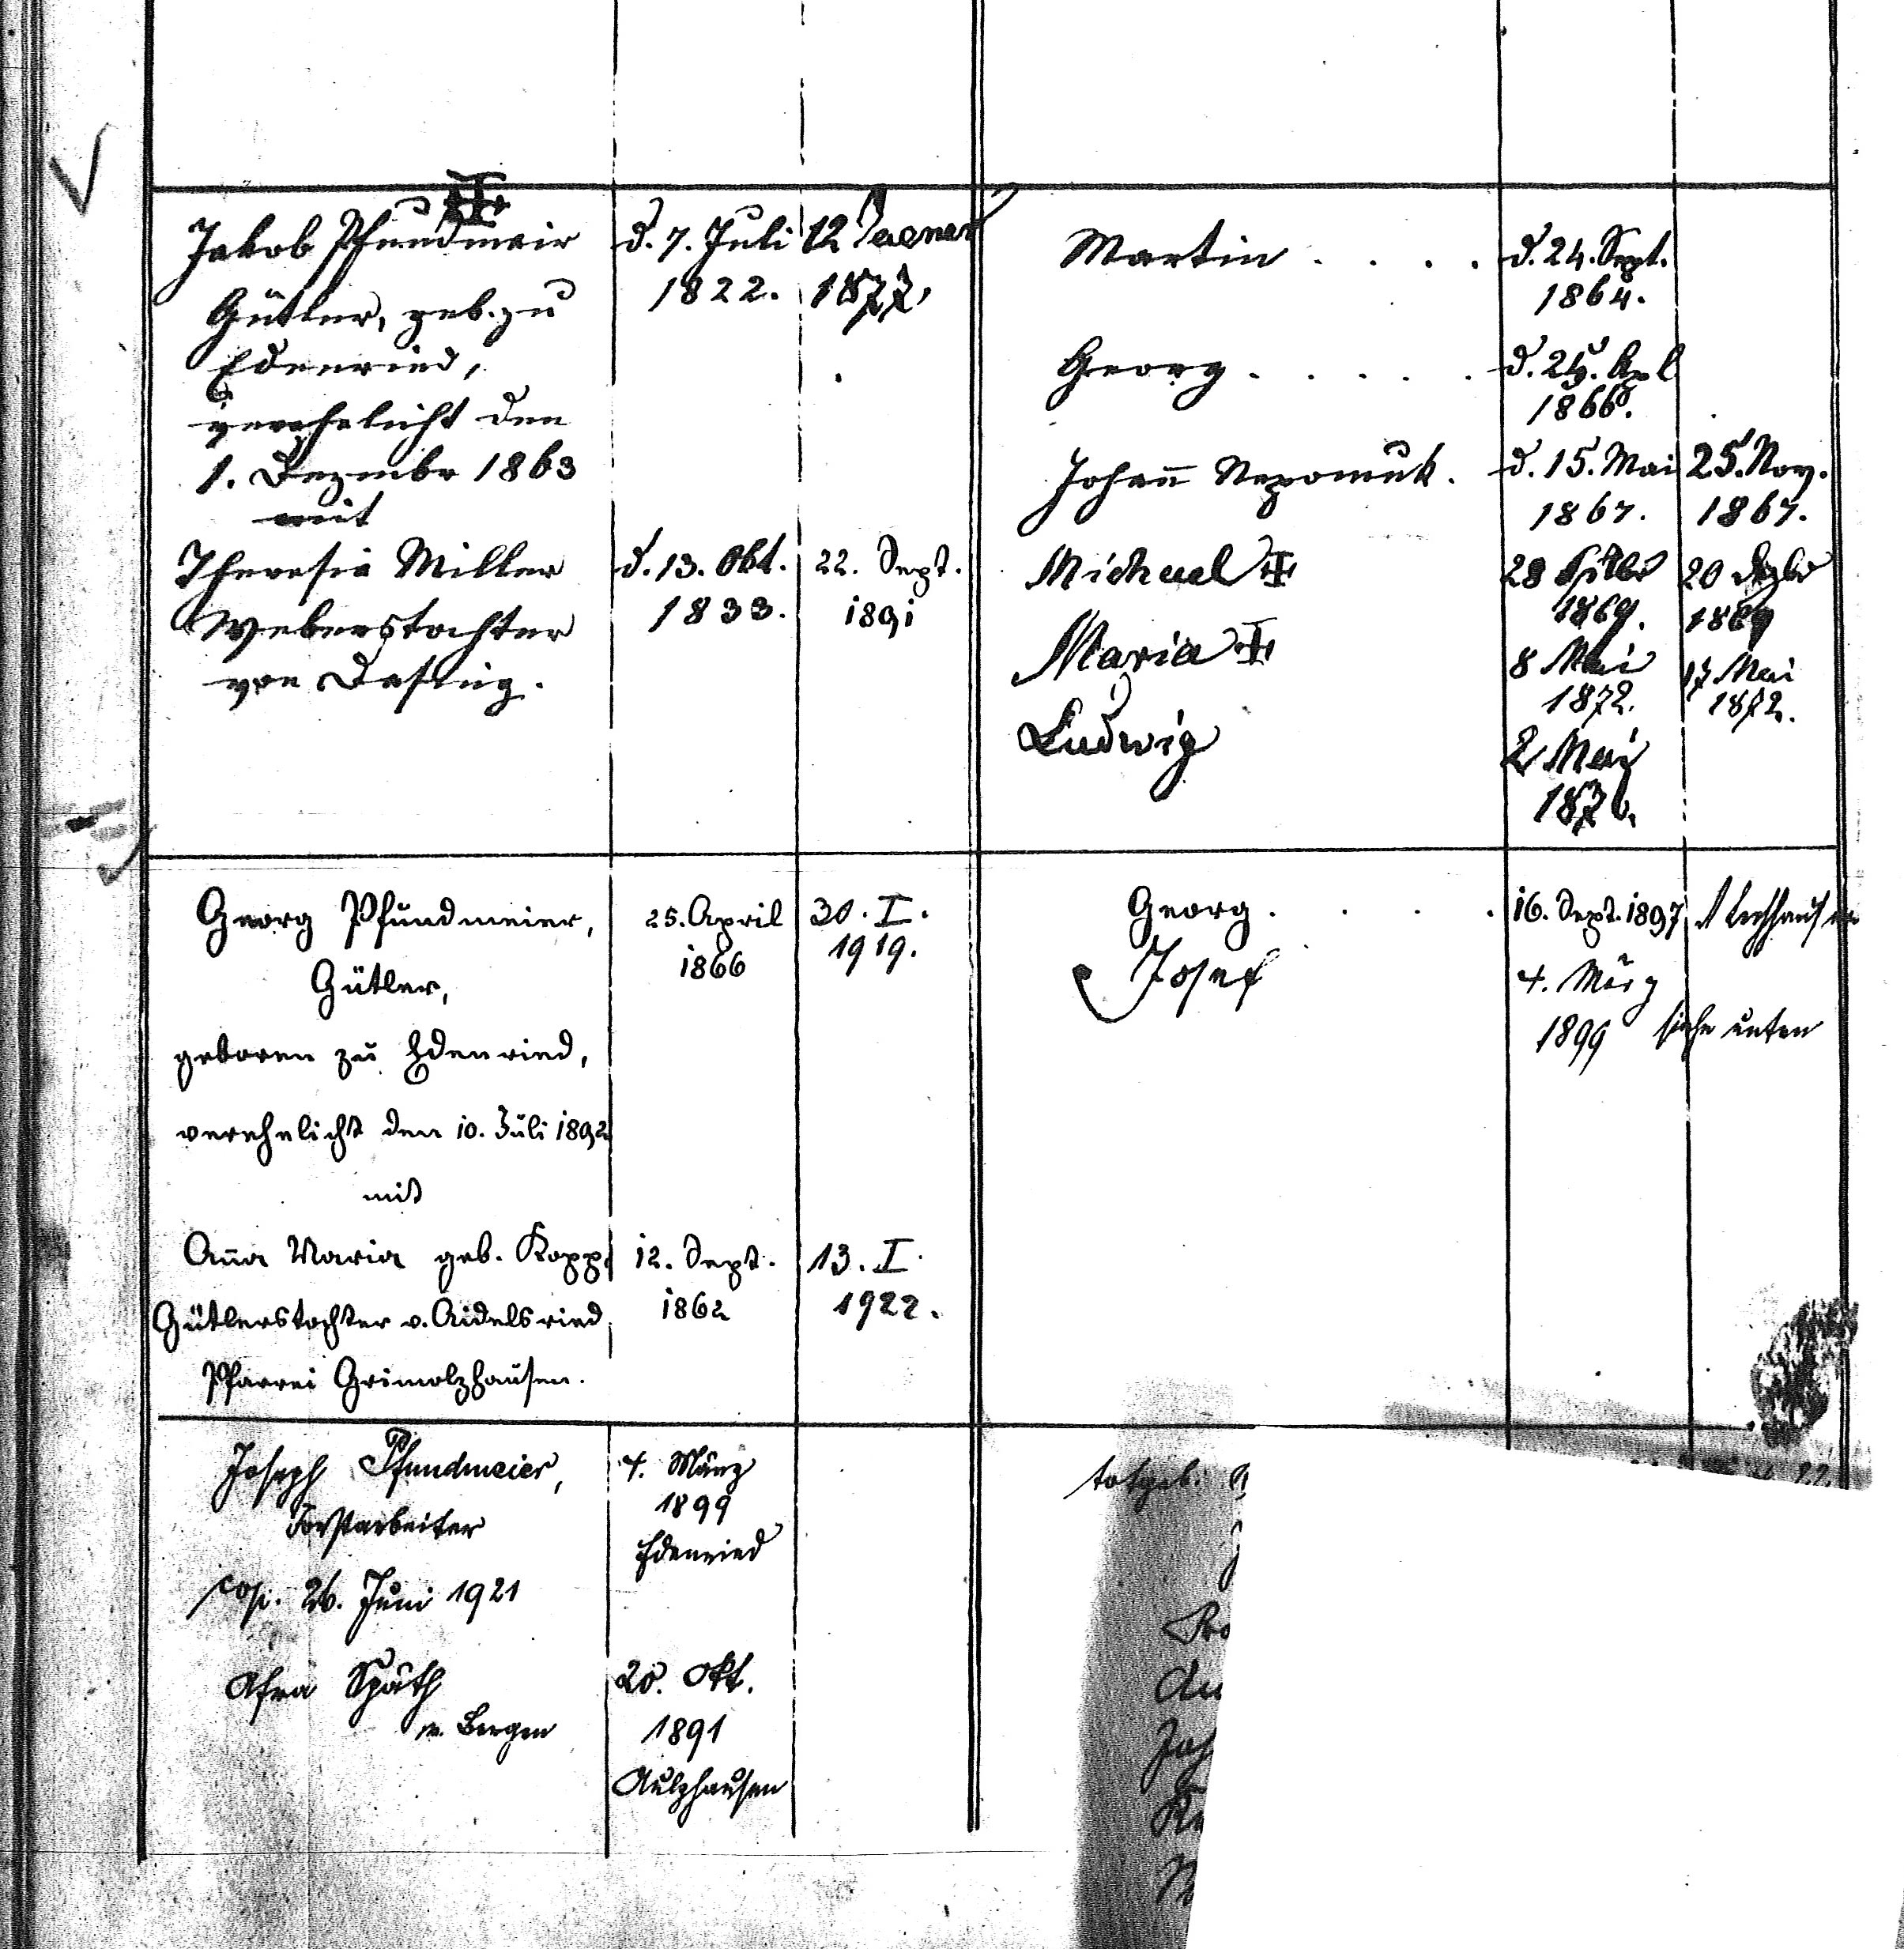 Jakob Pfundmeir
Gütler, geb. zu
Edenried,
verehelicht den
1. Dezember 1863
mit
Theresia Miller
Weberstochter
von Dasing.
d. 7. Juli
1822.
d. 13. Okt.
1833.
12 Jaener
1877.
22. Sept.
1891
Martin . . . .
Georg . . . . .
Johann Nepomuk.
Michael
Maria
Ludwig
d. 24. Sept.
1864.
d. 25. Apl
1866.
d. 15. Mai
1867.
28
1869.
8 Mai
1872.
2 Mai
1876.
25. Nov.
1867.
20 Dezbr
1869
17 Mai
1872.
Georg Pfundmeier,
Gütler,
geboren zu Edenried,
verehelicht den 10. Juli 1892
mit
Anna Maria geb. Kopp,
Gütlerstochter v. Aidelsried
Pfarrei Grimolzhausen.
25. April
1866
12. Sept.
1862
30. I.
1919.
13. I.
1922.
Georg . . . .
Josef
16. Sept. 1897
4. März
1899
Lechhausen
siehe unten
Joseph Pfundmeier,
Forstarbeiter
cop. 26. Juni 1921
Afra Späth
v. Bergen
4. März
1899
Edenried
20. Okt.
1891
Aulzhausen
totgeb.